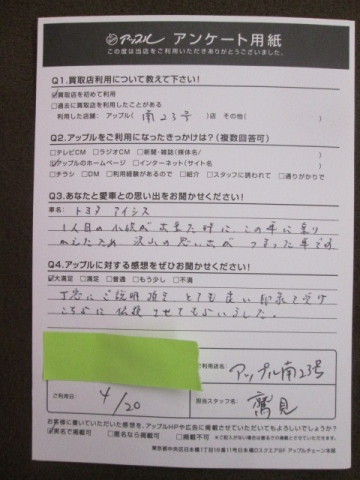 アップル アンケート用紙
この度は当店をご利用いただきありがとうございました。
Q1.買取店利用について教えて下さい!
☑買取店を初めて利用
□過去に買取店を利用したことがある
利用した店舗: アップル( 南23号 )店 その他( )
Q2.アップルをご利用になったきっかけは?(複数回答可)
□テレビCM □ラジオCM □新聞・雑誌(媒体名/ )
☑アップルのホームページ □インターネット(サイト名 )
□チラシ □DM □利用経験があるので □紹介 □スタッフに誘われて □通りがかりで
Q3.あなたと愛車との思い出をお聞かせください!
車名: トヨタ アイシス
1人目の小供が出来た時に、この車に乗り
かえたため 沢山の思い出が つまった車です
Q4.アップルに対する感想をぜひお聞かせください!
☑大満足 □満足 □普通 □もう少し □不満
丁寧にご説明頂き とても良い印象を受け
こちらに依頼させてもらいました。
ご利用店名: アップル南23号
ご利用日 4/20
担当スタッフ名: 鷲見
お客様に書いていただいた感想を、アップルHPや広告に掲載させていただいてもよろしいでしょうか?
☑実名で掲載可 □匿名なら掲載可 □掲載不可
東京都中央区日本橋1丁目16番11号日本橋Dスクエア5F アップルチェーン本部